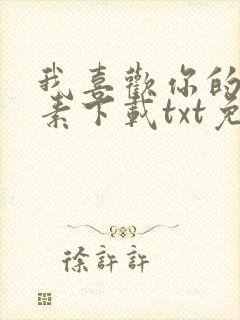 我喜歡你的
素下載txt免
徐許許